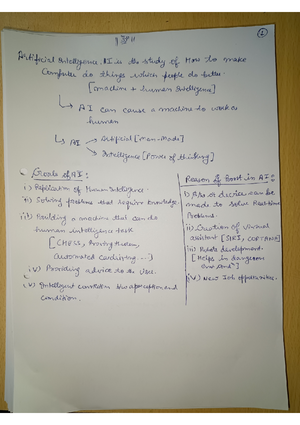 ①
Artificial Intelligence. AI is the study of How to make
Computer do things which people do better.
[machine + human Intelligence]
↳ AI can cause a machine to work as
human
↳ AI → Artificial [Man-Made]
→ Intelligence [Power of thinking]
Goals of AI:
i) Replication of Human Intelligence.
ii) Solving problems that require knowledge.
iii) Building a machine that can do
human intelligence task
[CHESS, Proving theorem,
automated car driving....]
iv) Providing advice to the user.
v) Intelligent connection b/w perception and
condition.
Reason of Boost in AI:
i) S/w or devices can be
made to solve Real-time
Problems.
ii) Creation of Virtual
assistant [SIRI, CORTANA]
iii) Robots development.
[Helps in dangerous
iv) New Job opportunities.